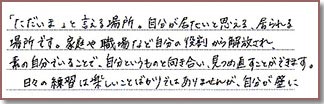 「ただいま」と言える場所。自分が居たいと思える、居られる
場所です。家庭や職場など自分の役割から解放され、
素の自分でいることで、自分というものと向き合い、見つめ直すことができます。
日々の練習は楽しいことばかりではありませんが、自分が壁に